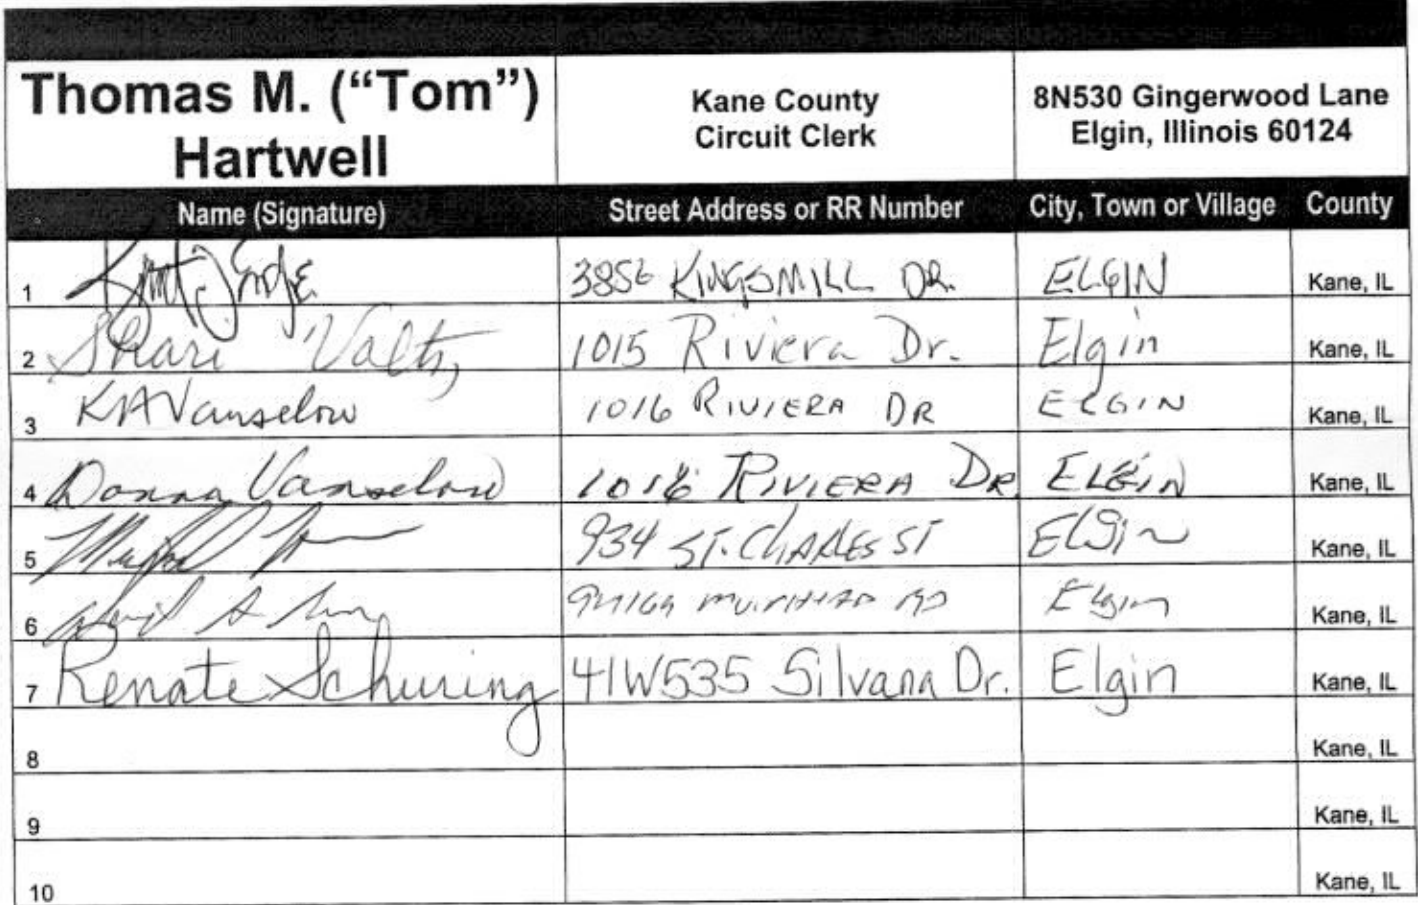 Thomas M. ("Tom") Hartwell
Kane County Circuit Clerk
8N530 Gingerwood Lane
Elgin, Illinois 60124
Name (Signature) Street Address or RR Number City, Town or Village County
1 3856 KINGSMILL DR. ELGIN Kane, IL
2 Shari 1015 Riviera Dr. Elgin Kane, IL
3 KA Vanselow 1016 RIVIERA DR ELGIN Kane, IL
4 Donna Vanselow 1016 RIVIERA DR ELGIN Kane, IL
5 934 ST. CHARLES ST Elgin Kane, IL
6 Elgin Kane, IL
7 Renate Schuring 41W535 Silvana Dr. Elgin Kane, IL
8 Kane, IL
9 Kane, IL
10 Kane, IL